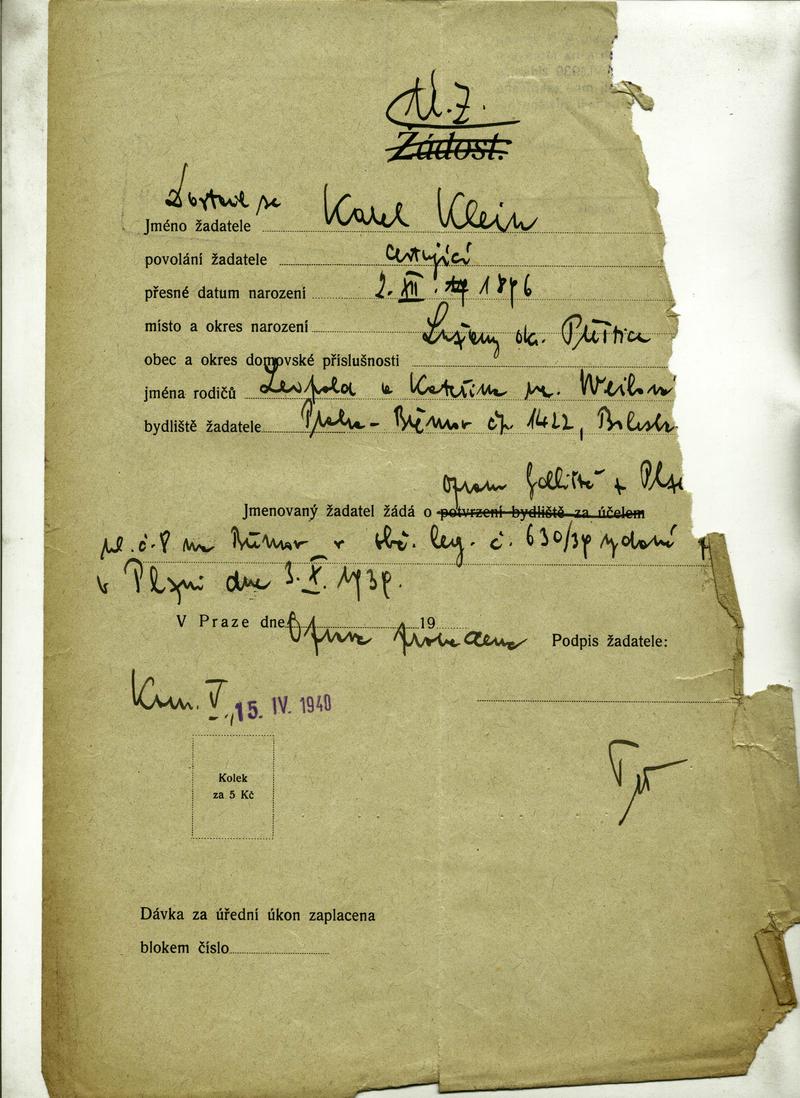 Ú.Z.
Žádost.
Dostavil se
Jméno žadatele Karel Klein
povolání žadatele cestující
přesné datum narození 2. XII. 1876
místo a okres narození Lužany ok. Přeštice
obec a okres domovské příslušnosti
jména rodičů Leopold a Kateřina r. Weilová
bydliště žadatele Praha - Břevnov čp. 1422,
opravu bydliště z
Jmenovaný žadatel žádá o potvrzení bydliště za účelem
č. 8 na Břevnov v obč. leg. č. 630/39 vydané
v Plzni dne 3. X. 1939.
V Praze dne 19
Oprava provedena
Podpis žadatele:
Kom. V., 15. IV. 1940
Kolek
za 5 Kč
Dávka za úřední úkon zaplacena
blokem číslo